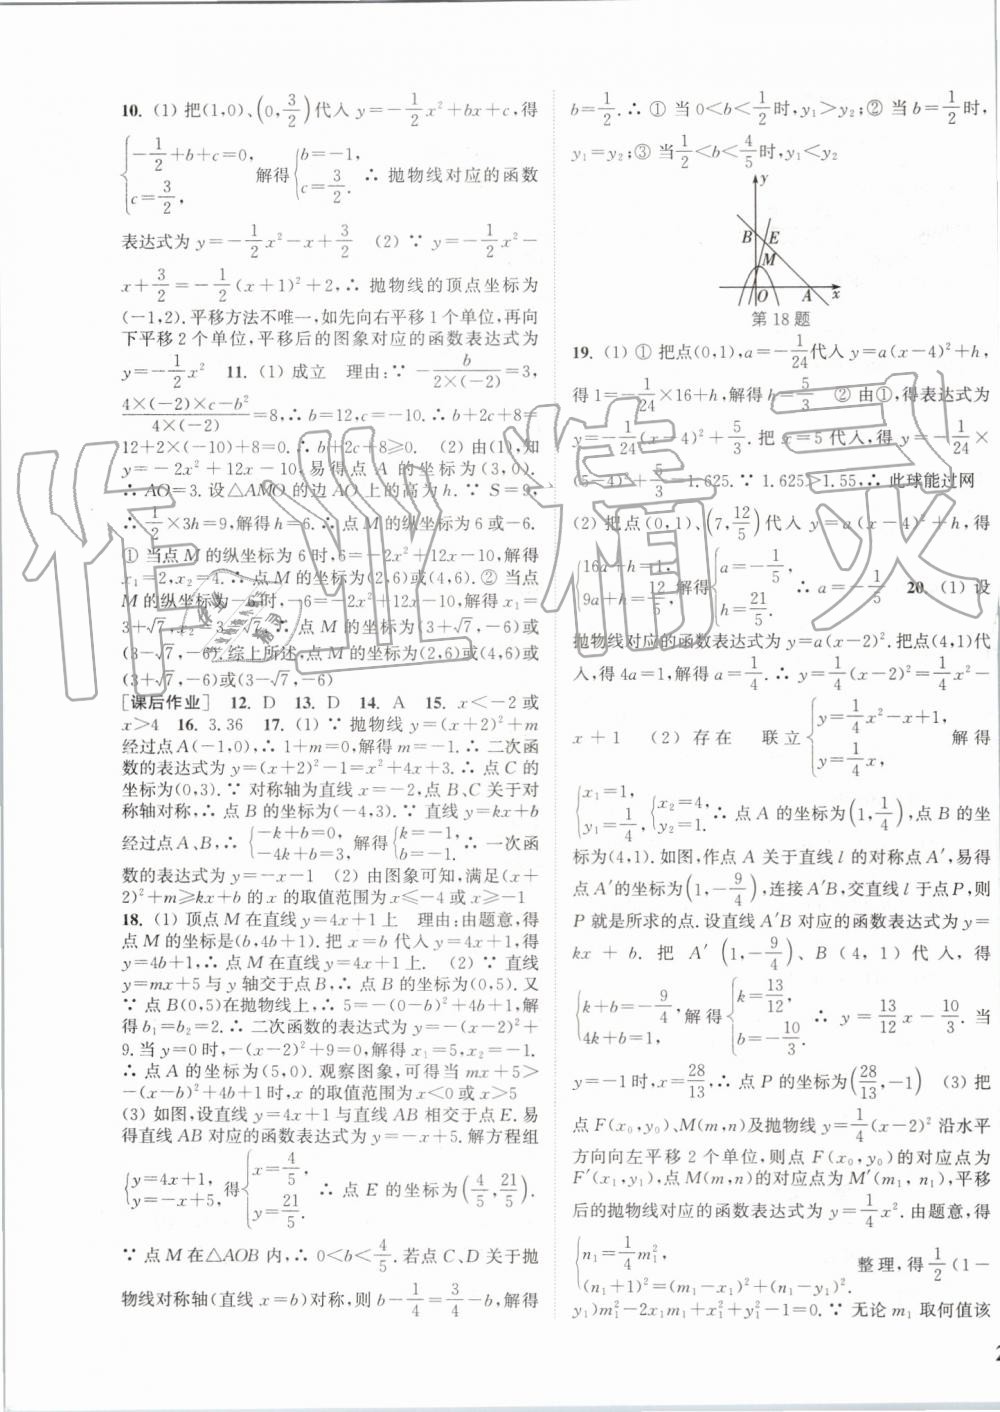 10. (1) 把(1,0)、(0,3/2)代入 y=-1/2x²+bx+c,得
{-1/2+b+c=0, c=3/2, 解得{b=-1, c=3/2. ∴ 抛物线对应的函数
表达式为 y=-1/2x²-x+3/2 (2) ∵ y=-1/2x²-
x+3/2=-1/2(x+1)²+2,∴ 抛物线的顶点坐标为
(-1,2).平移方法不唯一,如先向右平移1个单位,再向
下平移2个单位,平移后的图象对应的函数表达式为
y=-1/2x² 11. (1) 成立 理由:∵ -b/(2×(-2))=3,
(4×(-2)×c-b²)/(4×(-2))=8,∴ b=12,c=-10.∴ b+2c+8=
12+2×(-10)+8=0.∴ b+2c+8≥0. (2) 由(1),知
y=-2x²+12x-10,易得点 A 的坐标为(3,0).
∴ AO=3.设△AMO 的边 AO 上的高为 h.∵ S=9,
∴ 1/2×3h=9,解得 h=6.∴ 点 M 的纵坐标为6或-6.
① 当点 M 的纵坐标为6时,6=-2x²+12x-10,解得
x₁=2,x₂=4.∴ 点 M 的坐标为(2,6)或(4,6).② 当点
M 的纵坐标为-6时,-6=-2x²+12x-10,解得 x₁=
3+√7,x₂=3-√7.∴ 点 M 的坐标为(3+√7,-6)或
(3-√7,-6).综上所述,点 M 的坐标为(2,6)或(4,6)或
(3+√7,-6)或(3-√7,-6)
[课后作业] 12. D 13. D 14. A 15. x<-2或
x>4 16. 3.36 17. (1) ∵ 抛物线 y=(x+2)²+m
经过点A(-1,0),∴ 1+m=0,解得 m=-1.∴ 二次函
数的表达式为 y=(x+2)²-1=x²+4x+3.∴ 点 C 的
坐标为(0,3).∵ 对称轴为直线 x=-2,点 B、C 关于对
称轴对称,∴ 点 B 的坐标为(-4,3).∵ 直线 y=kx+b
经过点A、B,∴ {-k+b=0, -4k+b=3, 解得{k=-1, b=-1. ∴ 一次函
数的表达式为 y=-x-1 (2) 由图象可知,满足(x+
2)²+m≥kx+b 的 x 的取值范围为 x≤-4或 x≥-1
18. (1) 顶点 M 在直线 y=4x+1上 理由:由题意,得
点 M 的坐标是(b,4b+1).把 x=b 代入 y=4x+1,得
y=4b+1,∴ 点 M 在直线 y=4x+1上. (2) ∵ 直线
y=mx+5与 y 轴交于点 B,∴ 点 B 的坐标为(0,5).又
∵ 点 B(0,5)在抛物线上,∴ 5=-(0-b)²+4b+1,解
得 b₁=b₂=2.∴ 二次函数的表达式为 y=-(x-2)²+
9.当 y=0时,-(x-2)²+9=0,解得 x₁=5,x₂=-1.
∴ 点 A 的坐标为(5,0).观察图象,可得当 mx+5>
-(x-b)²+4b+1时,x 的取值范围为 x<0或 x>5
(3) 如图,设直线 y=4x+1与直线 AB 相交于点 E.易
得直线 AB 对应的函数表达式为 y=-x+5.解方程组
{y=4x+1, y=-x+5, 得{x=4/5, y=21/5. ∴ 点 E 的坐标为(4/5,21/5).
∵ 点 M 在△AOB 内,∴ 0<b<4/5.若点 C、D 关于抛
物线对称轴(直线 x=b)对称,则 b-1/4=3/4-b,解得
b=1/2.∴ ① 当 0<b<1/2时,y₁>y₂;② 当 b=1/2时,
y₁=y₂;③ 当1/2<b<4/5时,y₁<y₂
y
B E
M
O A x
第18题
19. (1) ① 把点(0,1),a=-1/24代入 y=a(x-4)²+h,
得1=-1/24×16+h,解得 h=5/3 ② 由①,得表达式为
y=-1/24(x-4)²+5/3.把 x=5代入,得 y=-1/24×
(5-4)²+5/3=1.625.∵ 1.625>1.55,∴ 此球能过网
(2) 把点(0,1)、(7,12/5)代入 y=a(x-4)²+h,得
{16a+h=1, 9a+h=12/5, 解得{a=-1/5, h=21/5. ∴ a=-1/5 20. (1) 设
抛物线对应的函数表达式为 y=a(x-2)².把点(4,1)代
入,得 4a=1,解得 a=1/4.∴ y=1/4(x-2)²=1/4x²-
x+1 (2) 存在 联立{y=1/4x²-x+1, y=1/4x, 解得
{x₁=1, y₁=1/4, {x₂=4, y₂=1. ∴ 点 A 的坐标为(1,1/4),点 B 的坐
标为(4,1).如图,作点 A 关于直线 l 的对称点 A′,易得
点 A′的坐标为(1,-9/4),连接 A′B,交直线 l 于点 P,则
P 就是所求的点.设直线 A′B 对应的函数表达式为 y=
kx+b.把 A′(1,-9/4)、B(4,1)代入,得
{k+b=-9/4, 4k+b=1, 解得{k=13/12, b=-10/3. ∴ y=13/12x-10/3.当
y=-1时,x=28/13.∴ 点 P 的坐标为(28/13,-1) (3) 把
点 F(x₀,y₀)、M(m,n)及抛物线 y=1/4(x-2)²沿水平
方向向左平移2个单位,则点 F(x₀,y₀)的对应点为
F′(x₁,y₁),点 M(m,n)的对应点为 M′(m₁,n₁),平移
后的抛物线对应的函数表达式为 y=1/4x².由题意,得
{n₁=1/4m₁², (n₁+1)²=(m₁-x₁)²+(n₁-y₁)². 整理,得1/2(1-
y₁)m₁²-2x₁m₁+x₁²+y₁²-1=0.∵ 无论 m₁ 取何值该
作业精灵
作业精灵